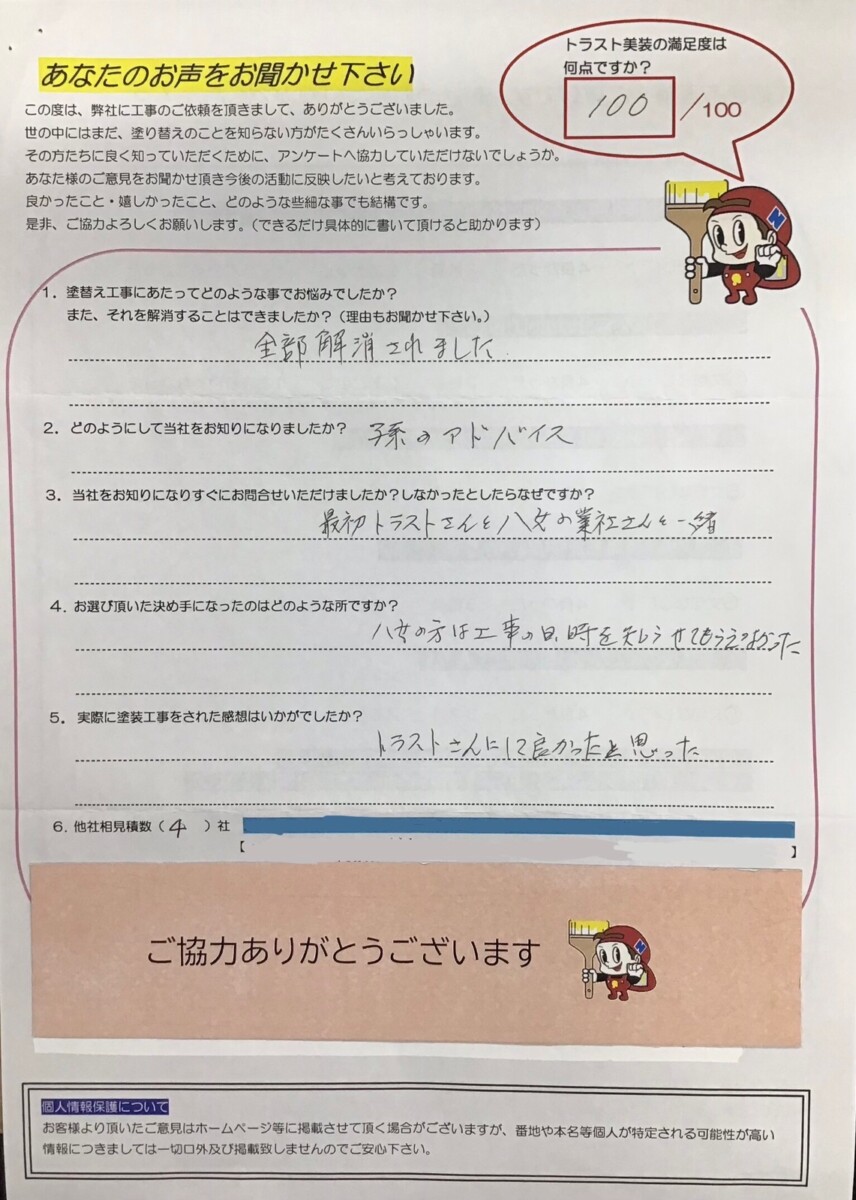 あなたのお声をお聞かせ下さい
トラスト美装の満足度は
何点ですか？
100／100
この度は、弊社に工事のご依頼を頂きまして、ありがとうございました。
世の中にはまだ、塗り替えのことを知らない方がたくさんいらっしゃいます。
その方たちに良く知っていただくために、アンケートへ協力していただけないでしょうか。
あなた様のご意見をお聞かせ頂き今後の活動に反映したいと考えております。
良かったこと・嬉しかったこと、どのような些細な事でも結構です。
是非、ご協力よろしくお願いします。（できるだけ具体的に書いて頂けると助かります）
N
1．塗替え工事にあたってどのような事でお悩みでしたか？
また、それを解消することはできましたか？（理由もお聞かせ下さい。）
全部解消されました
2．どのようにして当社をお知りになりましたか？ 孫のアドバイス
3．当社をお知りになりすぐにお問合せいただけましたか？しなかったとしたらなぜですか？
最初トラストさんと八女の業社さんと一緒
4．お選び頂いた決め手になったのはどのような所ですか？
八女の方は工事の日、時を知らせてもらえなかった
5．実際に塗装工事をされた感想はいかがでしたか？
トラストさんにして良かったと思った
6．他社相見積数（4）社
【 】
ご協力ありがとうございます
N
個人情報保護について
お客様より頂いたご意見はホームページ等に掲載させて頂く場合がございますが、番地や本名等個人が特定される可能性が高い
情報につきましては一切口外及び掲載致しませんのでご安心下さい。